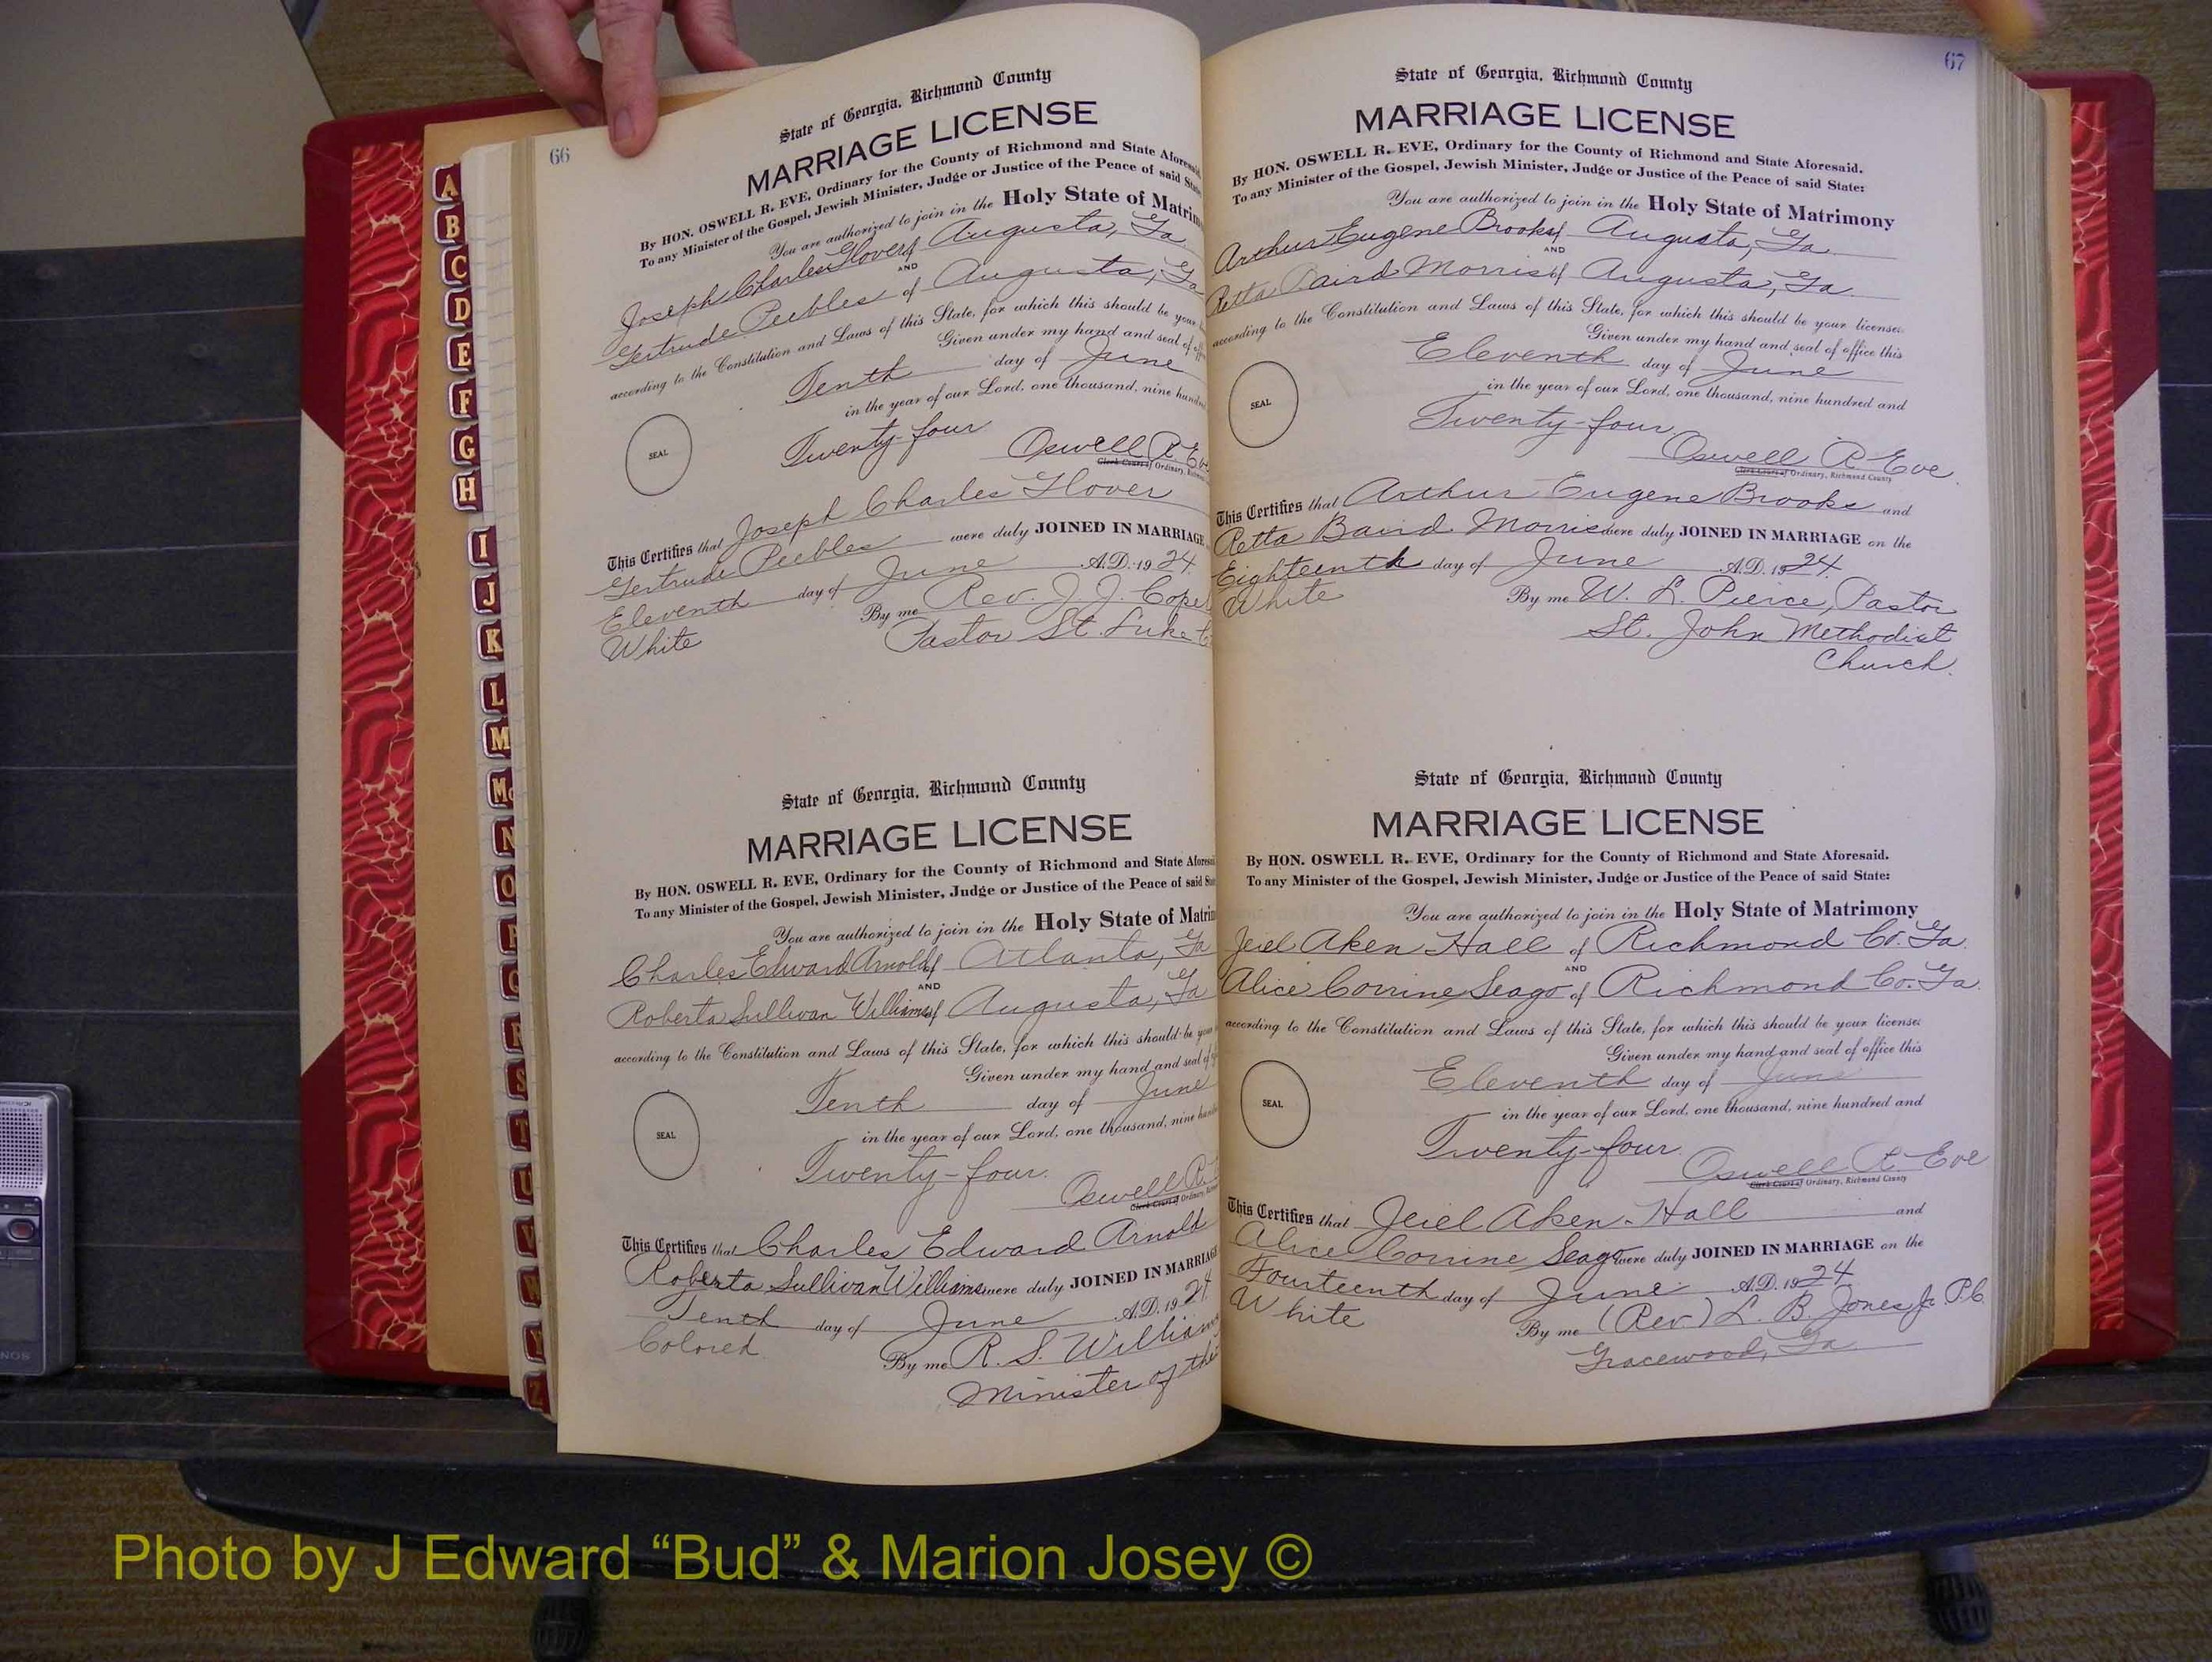 66
State of Georgia, Richmond County
MARRIAGE LICENSE
By HON. OSWELL R. EVE, Ordinary for the County of Richmond and State Aforesaid.
To any Minister of the Gospel, Jewish Minister, Judge or Justice of the Peace of said State
You are authorized to join in the Holy State of Matrim
Joseph Charles Glover of Augusta, Ga
AND
Gertrude Peebles of Augusta, Ga
according to the Constitution and Laws of this State, for which this should be your
Given under my hand and seal of
Tenth day of June
in the year of our Lord, one thousand, nine hundred
SEAL
Twenty-four
Oswell R. Eve
Clerk Court of Ordinary, Richmond
This Certifies that Joseph Charles Glover
Gertrude Peebles were duly JOINED IN MARRIAGE
Eleventh day of June A.D. 1924
White By me Rev. J. J. Cope
Pastor St. Luke
State of Georgia, Richmond County
MARRIAGE LICENSE
By HON. OSWELL R. EVE, Ordinary for the County of Richmond and State Aforesaid
To any Minister of the Gospel, Jewish Minister, Judge or Justice of the Peace of said State
You are authorized to join in the Holy State of Matrim
Charles Edward Arnold of Atlanta, Ga
AND
Roberta Sullivan Williams of Augusta, Ga
according to the Constitution and Laws of this State, for which this should be your
Given under my hand and seal of
Tenth day of June
in the year of our Lord, one thousand, nine hundred
SEAL
Twenty-four.
Oswell R.
Clerk Court of Ordinary,
This Certifies that Charles Edward Arnold
Roberta Sullivan Williams were duly JOINED IN MARRIAGE
Tenth day of June A.D. 1924
Colored. By me R. S. Williams
Minister of the
67
State of Georgia, Richmond County
MARRIAGE LICENSE
By HON. OSWELL R. EVE, Ordinary for the County of Richmond and State Aforesaid.
To any Minister of the Gospel, Jewish Minister, Judge or Justice of the Peace of said State:
You are authorized to join in the Holy State of Matrimony
Arthur Eugene Brooks of Augusta, Ga.
AND
Retta Baird Morris of Augusta, Ga.
according to the Constitution and Laws of this State, for which this should be your license:
Given under my hand and seal of office this
Eleventh day of June
in the year of our Lord, one thousand, nine hundred and
SEAL
Twenty-four
Oswell R. Eve.
Clerk Court of Ordinary, Richmond County
This Certifies that Arthur Eugene Brooks and
Retta Baird Morris were duly JOINED IN MARRIAGE on the
Eighteenth day of June A.D. 1924.
White By me W. L. Pierce, Pastor
St. John Methodist
Church.
State of Georgia, Richmond County
MARRIAGE LICENSE
By HON. OSWELL R. EVE, Ordinary for the County of Richmond and State Aforesaid.
To any Minister of the Gospel, Jewish Minister, Judge or Justice of the Peace of said State:
You are authorized to join in the Holy State of Matrimony
Jeiel Aken Hall of Richmond Co. Ga.
AND
Alice Corrine Seago of Richmond Co. Ga.
according to the Constitution and Laws of this State, for which this should be your license:
Given under my hand and seal of office this
Eleventh day of June
in the year of our Lord, one thousand, nine hundred and
SEAL
Twenty-four.
Oswell R. Eve
Clerk Court of Ordinary, Richmond County
This Certifies that Jeiel Aken Hall and
Alice Corrine Seago were duly JOINED IN MARRIAGE on the
Fourteenth day of June A.D. 1924.
White By me (Rev.) L. B. Jones Jr. P.C.
Gracewood, Ga
A
B
C
D
E
F
G
H
I
J
K
L
M
Mc
N
O
P
Q
R
S
T
U
V
W
Y
Z
Photo by J Edward “Bud” & Marion Josey ©